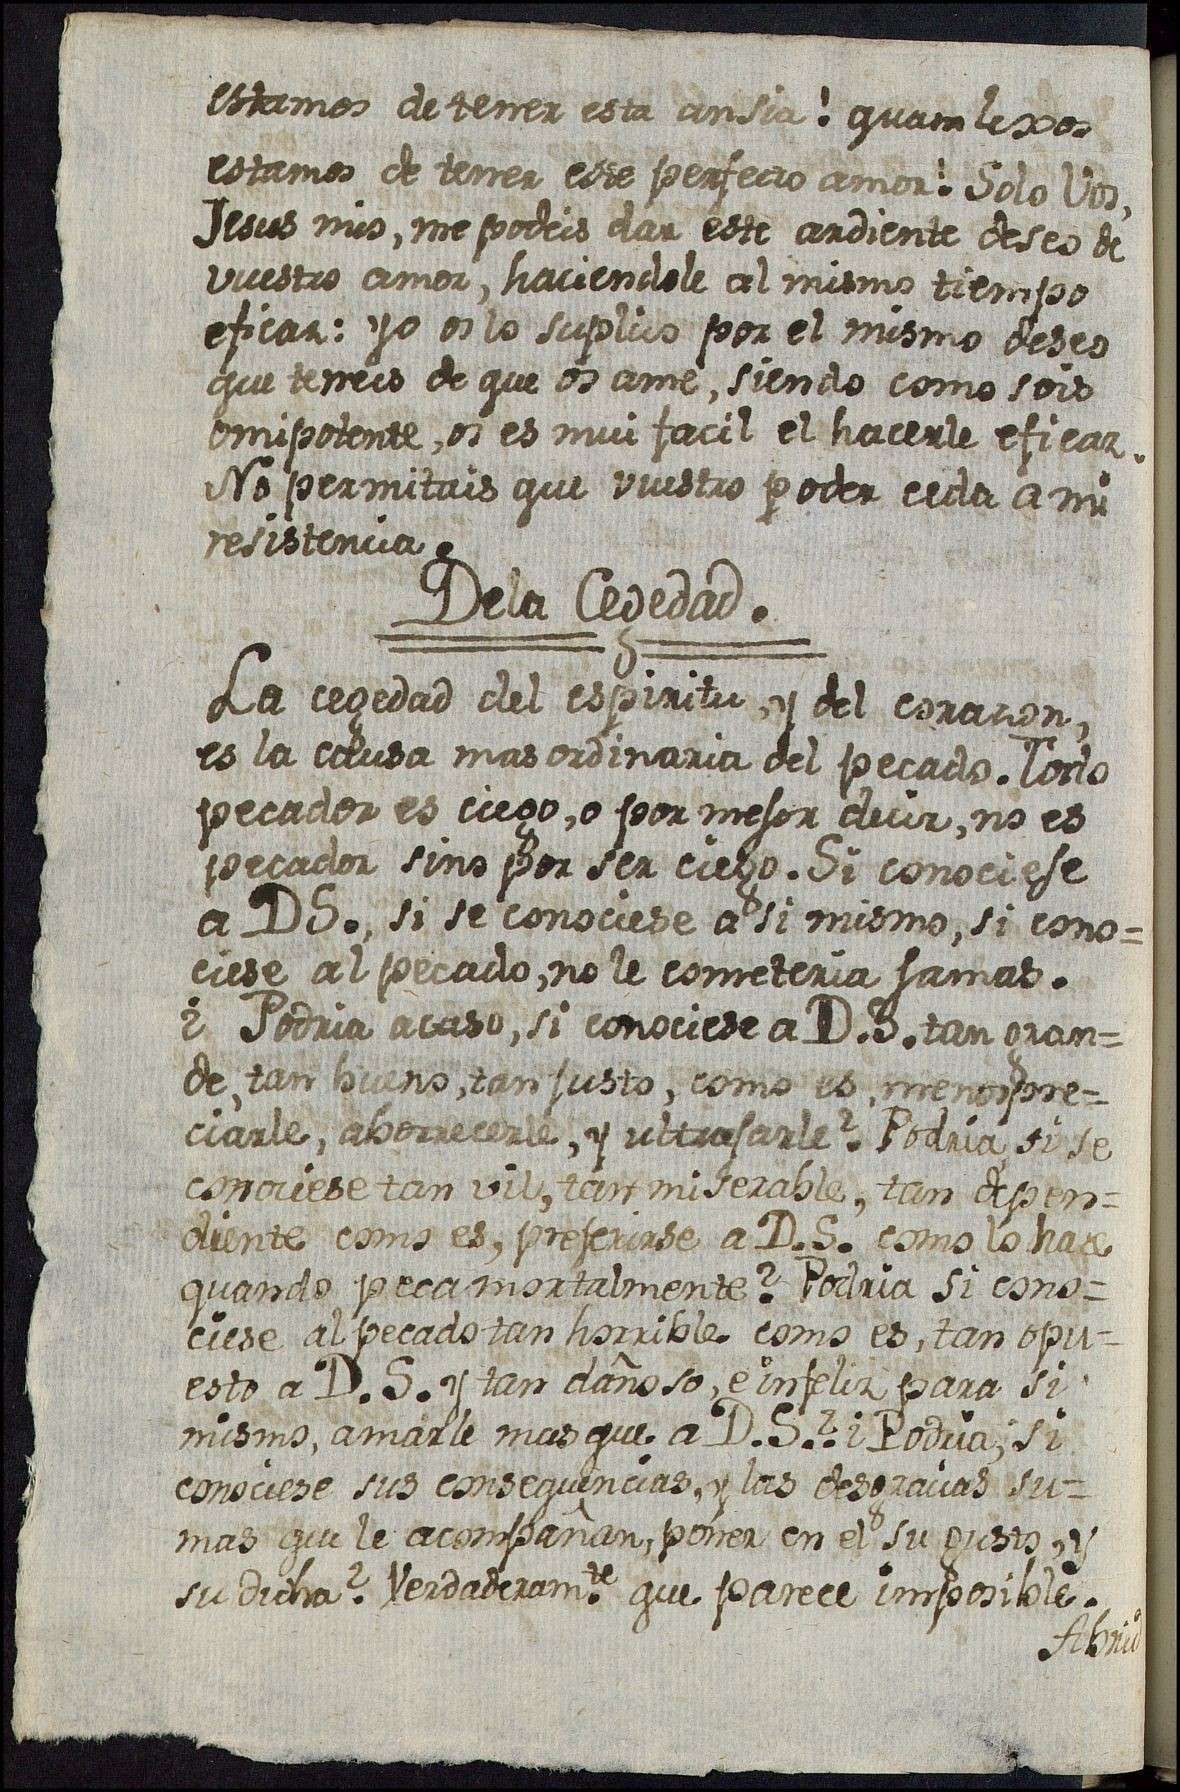 estamos de tener esta ansia! quam lexos
estamos de tener esse perfecto amor! Solo Vos,
Jesus mio, me podeis dar este ardiente deseo de
vuestro amor, haciendole al mismo tiempo
eficaz: yo os lo suplico por el mismo deseo
que teneis de que os ame, siendo como sois
omipotente, os es mui facil el hacerle eficaz.
No permitais que vuestro poder ceda a mi
resistencia.
De la Cegedad.
La cegedad del espiritu, y del corazon,
es la causa mas ordinaria del pecado. Todo
pecador es ciego, o por mejor decir, no es
pecador sino por ser ciego. Si conociese
a DS., si se conociese a si mismo, si cono=
ciese al pecado, no le cometeria jamas.
¿ Podria acaso, si conociese a D.S. tan gran=
de, tan bueno, tan justo, como es, menospre=
ciarle, aborrecerle, y ultrajarle? Podria, si se
conociese tan vil, tan miserable, tan depen=
diente como es, preferirse a D.S. como lo hace
quando peca mortalmente? Podria si cono=
ciese al pecado tan horrible como es, tan opu=
esto a D.S. y tan dañoso, e infeliz para si
mismo, amarle mas que a D.S.? ¿Podria, si
conociese sus consequencias, y las desgracias su=
mas que le acompañan, poner en el su gusto, y
su dicha? Verdaderam.te que parece imposible.
Abrid